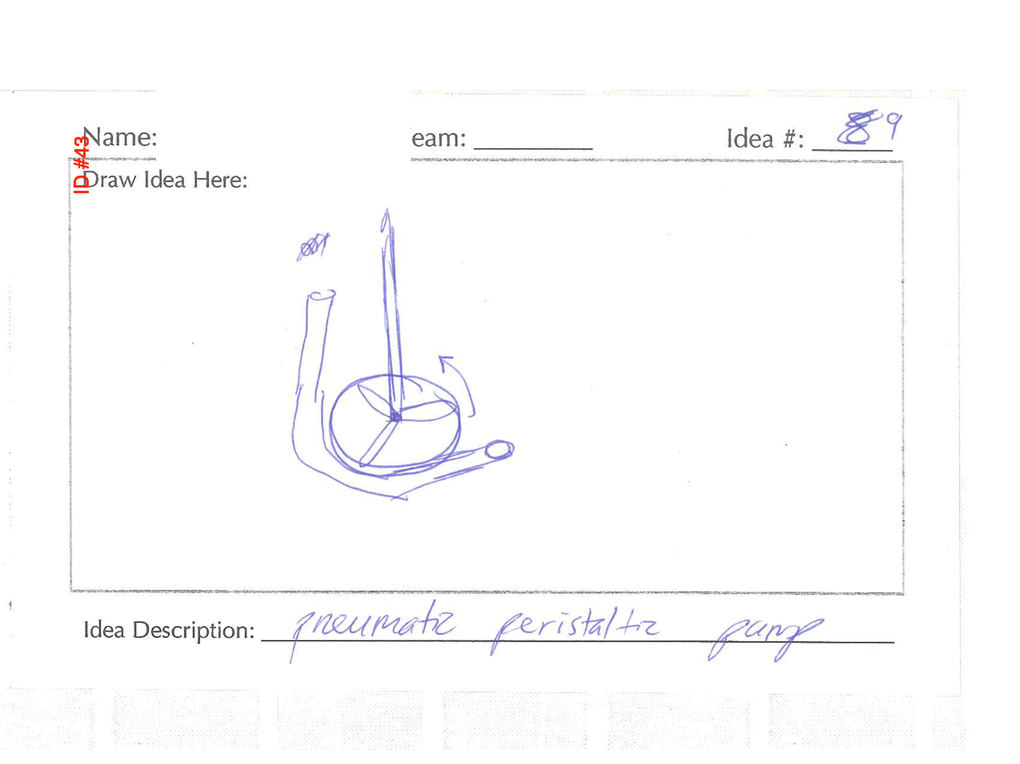 Name: eam: Idea #: 9
ID #43
Draw Idea Here:
Idea Description: pneumatic peristaltic pump